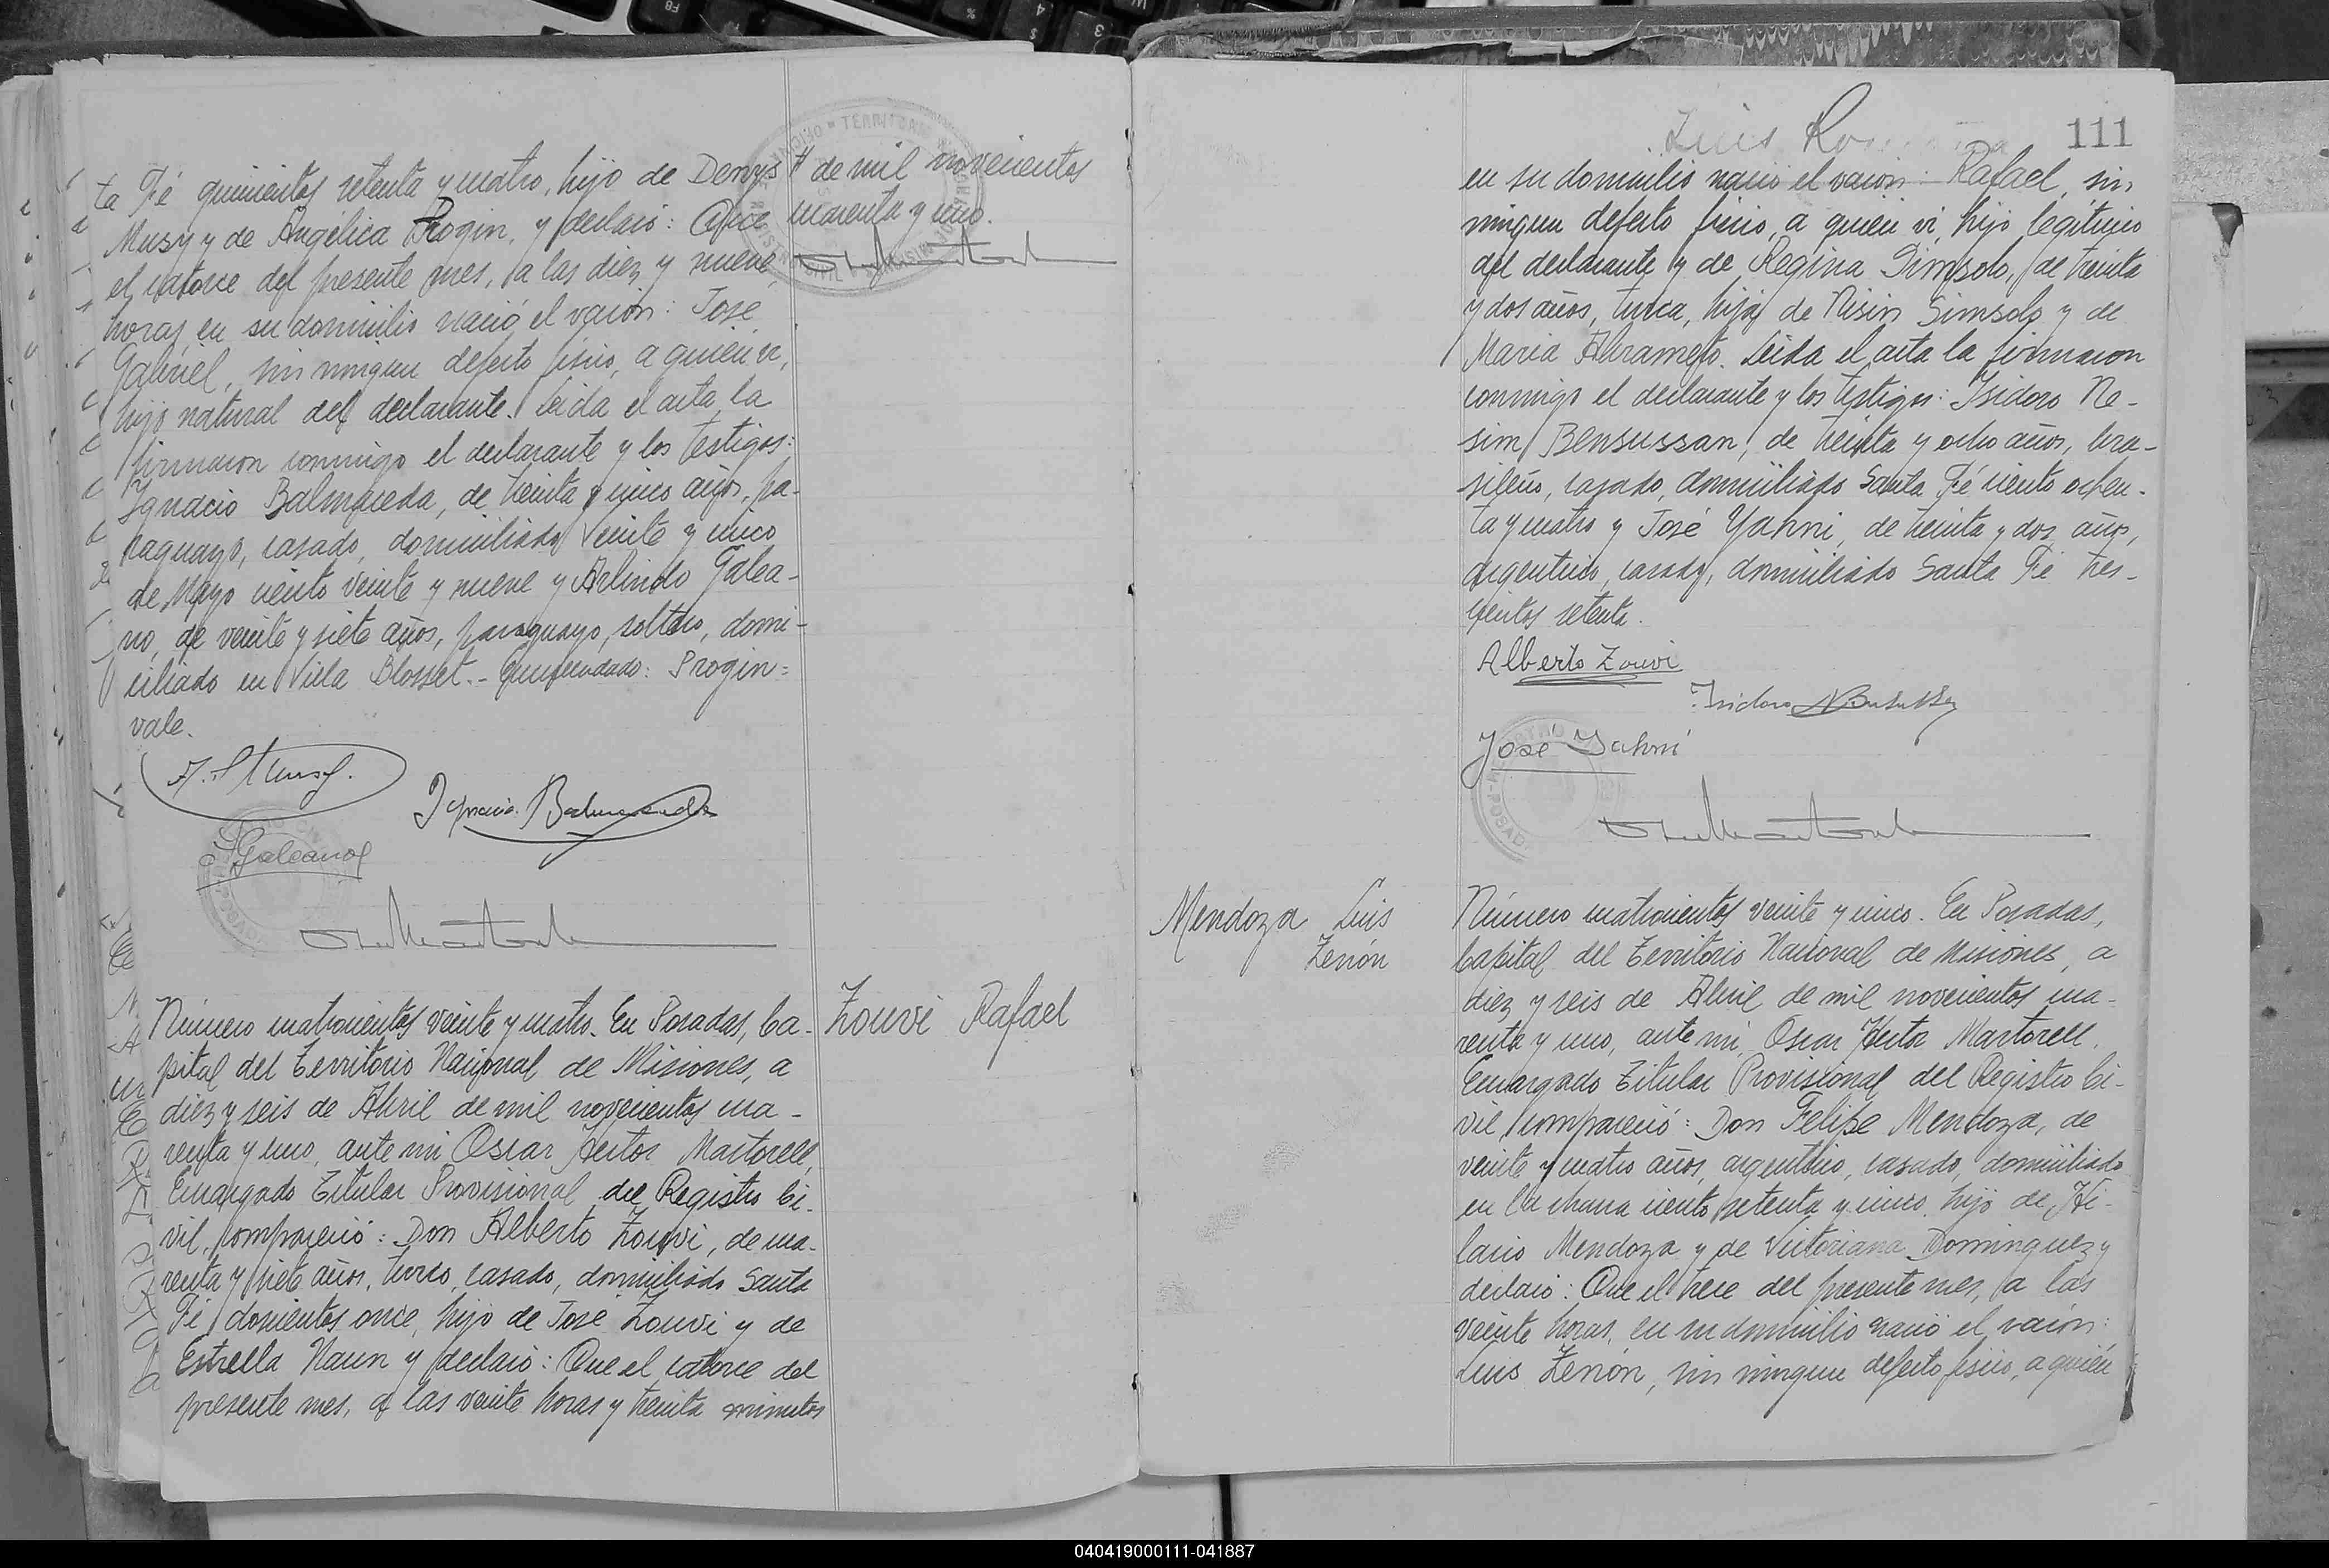 ta Fé quinientos setenta y cuatro, hijo de Denys
Musy y de Angélica Progin, y declaró: Que
el catorce del presente mes, a las diez y nueve
horas en su domicilio nació el varón: José
Gabriel, sin ningun defecto fisico, a quién vi,
hijo natural del declarante. Leida el acta la
firmaron conmigo el declarante y los testigos:
Ignacio Balmaceda, de treinta y cinco años, pa-
raguayo, casado, domiciliado Veinte y cinco
de Mayo ciento veinte y nueve y Arlindo Galea-
no, de veinte y siete años, paraguayo, soltero, domi-
ciliado en Villa Blosset.- Enmendado: Progin=
vale.
# de mil novecientos
cuarenta y uno.
Ignacio Balmaceda
Galeano
Zouvi Rafael
Número cuatrocientos veinte y cuatro. En Posadas, Ca-
pital del Territorio Nacional de Misiones, a
diez y seis de Abril de mil novecientos cua-
renta y uno, ante mi Oscar Hector Martorell,
Encargado Titular Provisional del Registro Ci-
vil, compareció: Don Alberto Zouvi, de cua-
renta y siete años, turco, casado, domiciliado Santa
Fé doscientos once, hijo de José Zouvi y de
Estrella Naun y declaró: Que el catorce del
presente mes, a las veinte horas y treinta minutos
Luis
111
en su domicilio nació el varón: Rafael, sin
ningun defecto fisico, a quién vi, hijo legítimo
del declarante y de Regina Simsolo, de treinta
y dos años, turca, hija de Nisin Simsolo y de
Maria Abrameto. Leida el acta la firmaron
conmigo el declarante y los testigos: Isidoro Ne-
sim Bensussan, de treinta y ocho años, bra-
sileño, casado, domiciliado Santa Fé ciento ochen-
ta y cuatro y José Yahni, de treinta y dos años,
argentino, casado, domiciliado Santa Fé tres-
cientos setenta.
Alberto Zouvi
Isidoro N Bensussan
Jose Yahni
Mendoza Luis
Zenón
Número cuatrocientos veinte y cinco. En Posadas,
Capital del Territorio Nacional de Misiones, a
diez y seis de Abril de mil novecientos cua-
renta y uno, ante mi, Oscar Hector Martorell,
Encargado Titular Provisional del Registro Ci-
vil, compareció: Don Felipe Mendoza, de
veinte y cuatro años, argentino, casado, domiciliado
en la chacra ciento setenta y cinco, hijo de Hi-
lario Mendoza y de Victoriana Dominguez y
declaró: Que el trece del presente mes, a las
veinte horas, en su domicilio nació el varón:
Luis Zenón, sin ningun defecto fisico, a quién
040419000111-041887